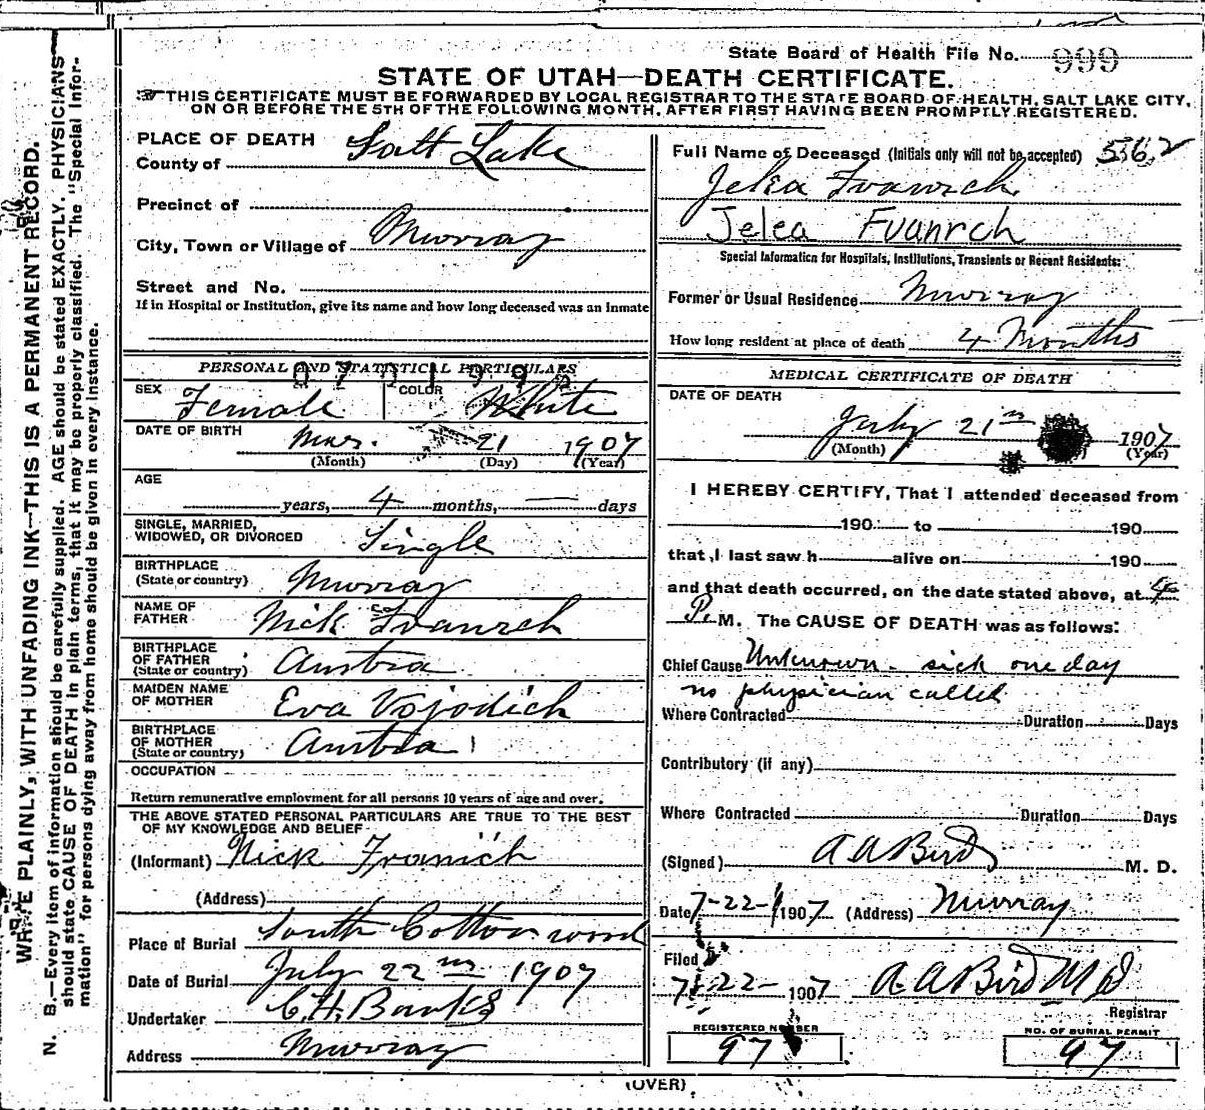 State Board of Health File No. 999
STATE OF UTAH—DEATH CERTIFICATE.
THIS CERTIFICATE MUST BE FORWARDED BY LOCAL REGISTRAR TO THE STATE BOARD OF HEALTH, SALT LAKE CITY,
ON OR BEFORE THE 5TH OF THE FOLLOWING MONTH, AFTER FIRST HAVING BEEN PROMPTLY REGISTERED.
WRITE PLAINLY, WITH UNFADING INK—THIS IS A PERMANENT RECORD.
N. B.—Every item of information should be carefully supplied. AGE should be stated EXACTLY. PHYSICIANS
should state CAUSE OF DEATH in plain terms, that it may be properly classified. The "Special Infor-
mation" for persons dying away from home should be given in every instance.
PLACE OF DEATH
County of Salt Lake
Precinct of
City, Town or Village of Murray
Street and No.
If in Hospital or Institution, give its name and how long deceased was an Inmate
PERSONAL AND STATISTICAL PARTICULARS
SEX Female COLOR White
DATE OF BIRTH Mar. 21 1907
(Month) (Day) (Year)
AGE
years, 4 months, — days
SINGLE, MARRIED,
WIDOWED, OR DIVORCED Single
BIRTHPLACE
(State or country) Murray
NAME OF
FATHER Nick Ivanrch
BIRTHPLACE
OF FATHER
(State or country) Austra
MAIDEN NAME
OF MOTHER Eva Vojodich
BIRTHPLACE
OF MOTHER
(State or country) Austra
OCCUPATION
Return remunerative employment for all persons 10 years of age and over.
THE ABOVE STATED PERSONAL PARTICULARS ARE TRUE TO THE BEST
OF MY KNOWLEDGE AND BELIEF
(Informant) Nick Ivanich
(Address)
Place of Burial South Cottonwood
Date of Burial July 22nd 1907
Undertaker C.H. Banks
Address Murray
Full Name of Deceased (Initials only will not be accepted) 5362
Jelea Ivanrch
Jelea Fuanrch
Special Information for Hospitals, Institutions, Transients or Recent Residents:
Former or Usual Residence Murray
How long resident at place of death 4 Months
MEDICAL CERTIFICATE OF DEATH
DATE OF DEATH
July 21st 1907
(Month) (Year)
I HEREBY CERTIFY, That I attended deceased from
190 to 190
that I last saw h alive on 190
and that death occurred, on the date stated above, at 4
P. M. The CAUSE OF DEATH was as follows:
Chief Cause Unknown - sick one day
no physician called
Where Contracted Duration Days
Contributory (if any)
Where Contracted Duration Days
(Signed) A A Bird M. D.
Date 7-22- 1907 (Address) Murray
Filed
7-22- 1907 A A Bird M d
Registrar
REGISTERED NUMBER
97
NO. OF BURIAL PERMIT
97
(OVER)